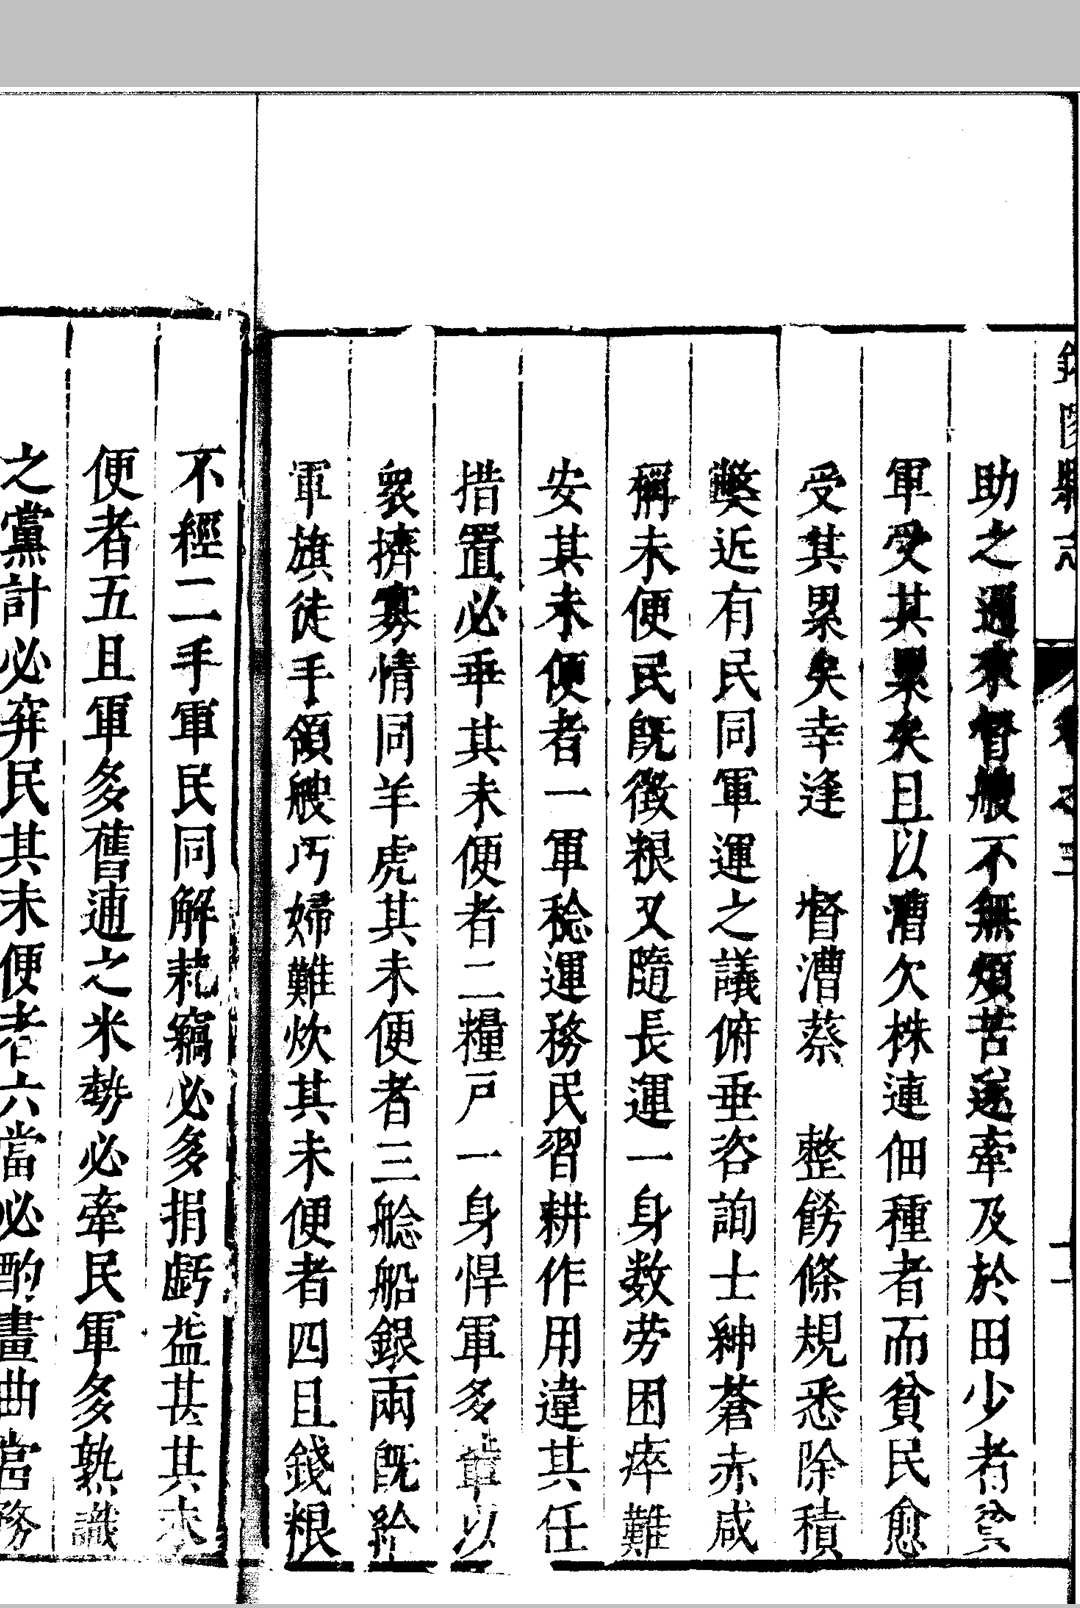 縣志 卷之三 十一
助之邇來督艘不無煩苦遂牽及於田少者貧
軍受其累矣且以漕欠株連佃種者而貧民愈
受其累矣幸逢 督漕蔡 整飭條規悉除積
獘近有民同軍運之議俯垂咨詢士紳蒼赤咸
稱未便民既徵粮又隨長運一身数劳困瘁難
安其未便者一軍稔運務民習耕作用違其任
措置必乖其未便者二糧戸一身悍軍多輩以
衆擠寡情同羊虎其未便者三艌船銀兩既給
軍旗徒手領艘巧婦難炊其未便者四且錢粮
不經二手軍民同解耗竊必多捐虧益甚其未
便者五且軍多舊逋之米勢必牽民軍多熟識
之黨計必穽民其未便者六當必酌畫曲當務